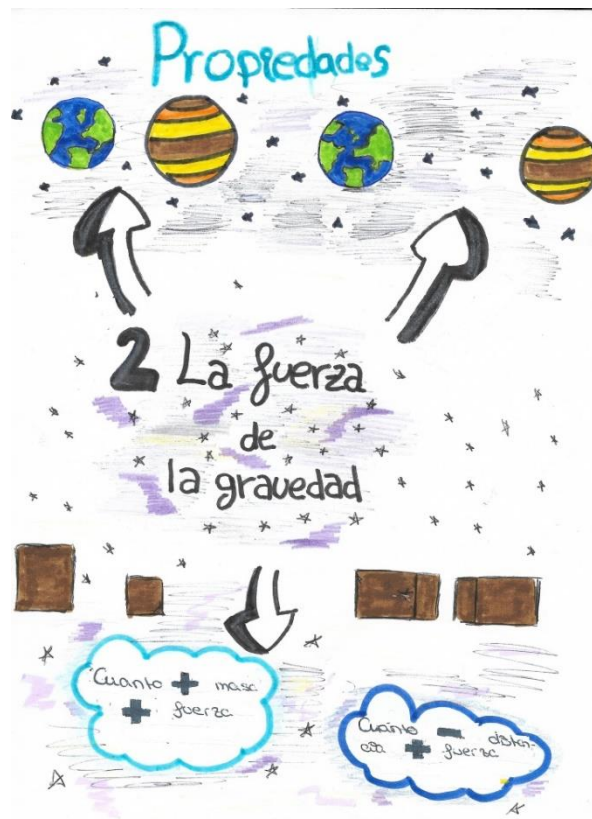 Propiedades
2 La fuerza
de
la gravedad
Cuanto + masa
+ fuerza
Cuánto - distan-
cia + fuerza